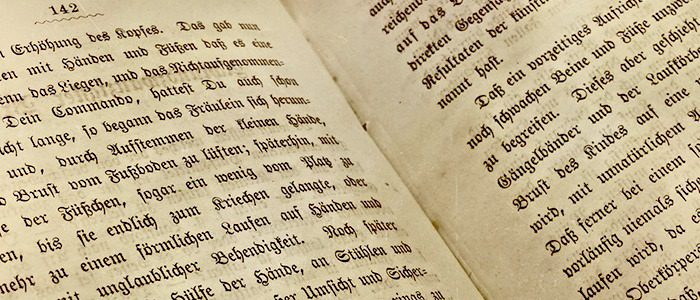 142
Erhöhung des Kopfes. Das gab nun
mit Händen und Füßen daß es eine
das Liegen, und das Nichtaufgenommen=
Dein Commando, hattest Du auch schon
lange, so begann das Fräulein sich herum=
und, durch Aufstemmen der kleinen Hände,
Brust vom Fußboden zu lüften; späterhin, mit
der Füßchen, sogar ein wenig vom Platz zu
bis sie endlich zum Kriechen gelangte, oder
zu einem förmlichen Laufen auf Händen und
mit unglaublicher Behendigkeit. Noch später
Hülfe der Hände, an Stühlen und
Umsicht und Sicher=
zu
auch
auf das
direkten Gegensatz
Resultaten der künstl
nannt hast.
Daß ein vorzeitiges Aufrich
noch schwachen Beine und Füße
zu begreifen. Dieses aber geschieh
Gängelbänder und der Laufkör
Brust des Kindes auf eine
wird, mit unnatürlichem
Daß ferner bei einem
vorläufig niemals sich
laufen wird, da
Oberkörper